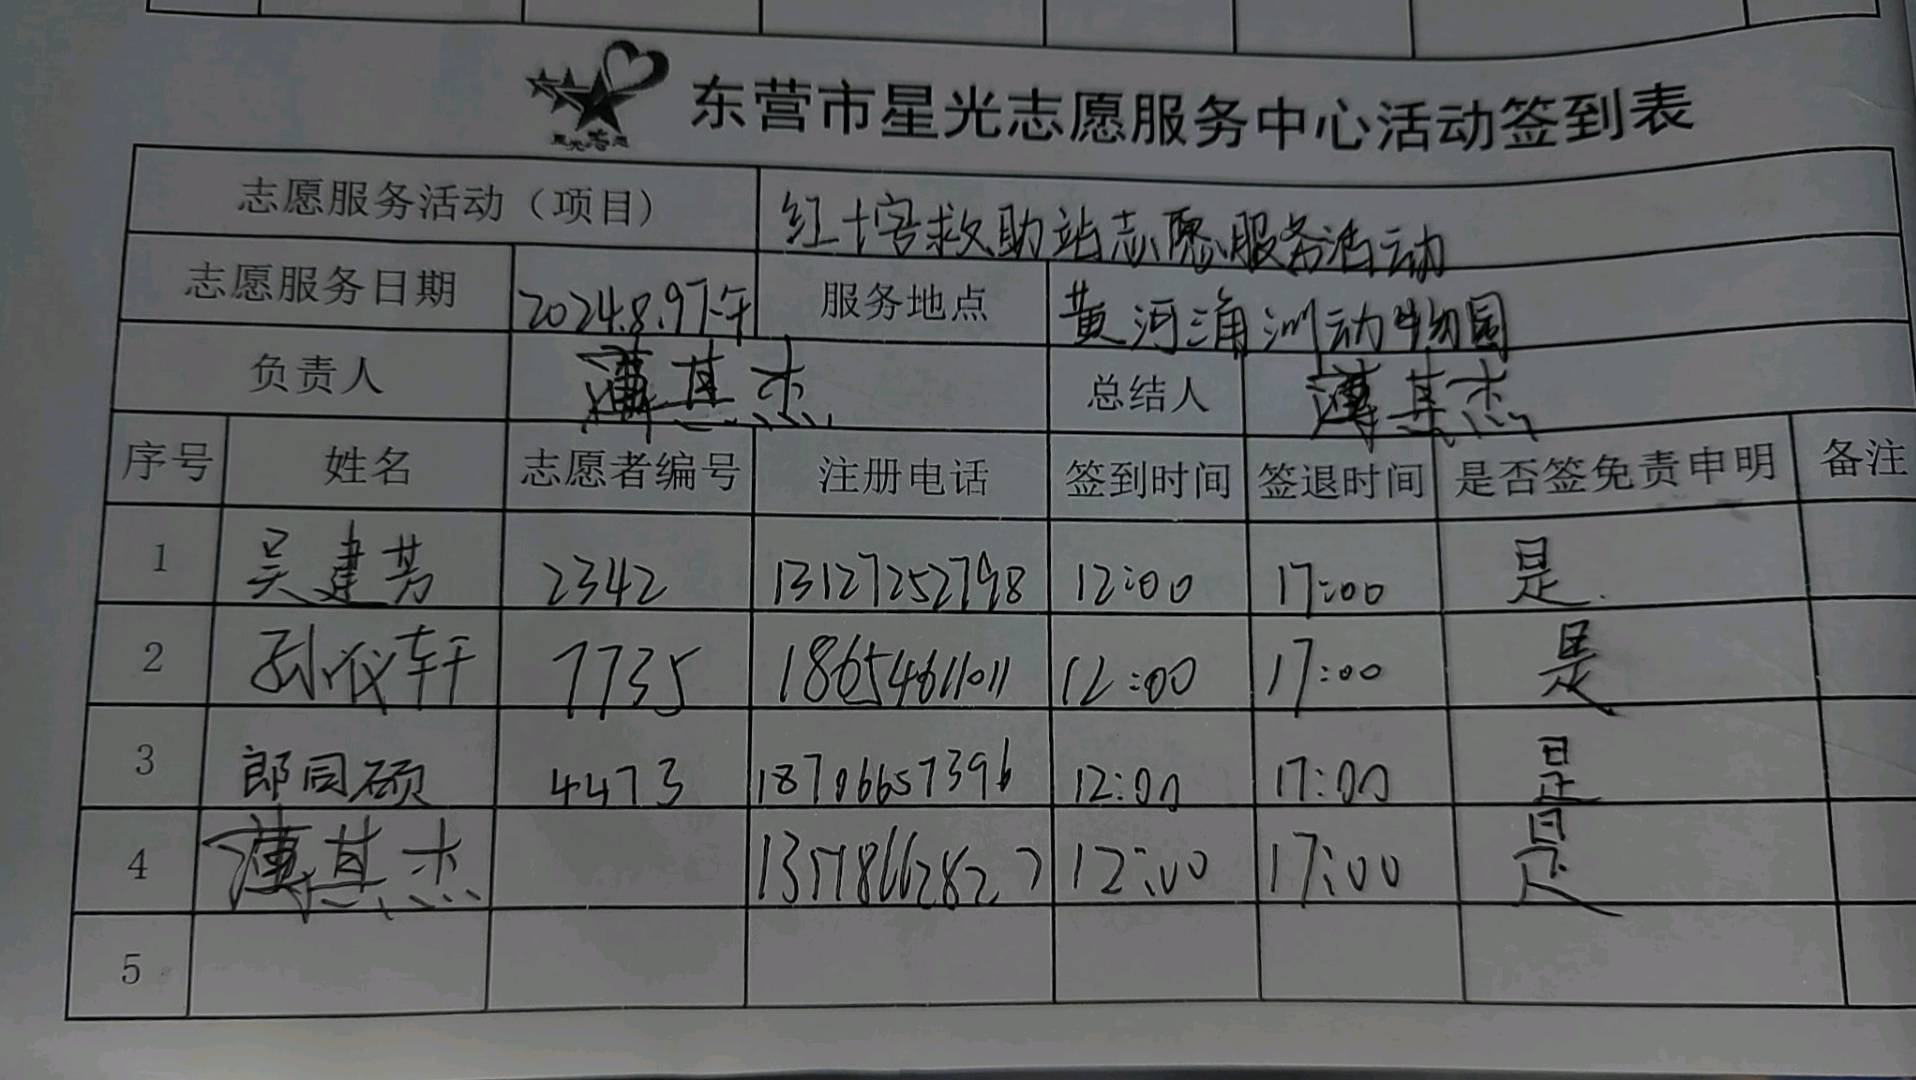 星光志愿
东营市星光志愿服务中心活动签到表
志愿服务活动（项目） 红十字救助站志愿服务活动
志愿服务日期 2024.8.9下午 服务地点 黄河三角洲动物园
负责人 薄其杰 总结人 薄其杰
序号 姓名 志愿者编号 注册电话 签到时间 签退时间 是否签免责申明 备注
1 吴建芳 2342 13127252798 12:00 17:00 是.
2 孙仪轩 7735 18654611011 12:00 17:00 是
3 郎同硕 4473 18706657396 12:00 17:00 是
4 薄其杰 12:00 17:00 是
5